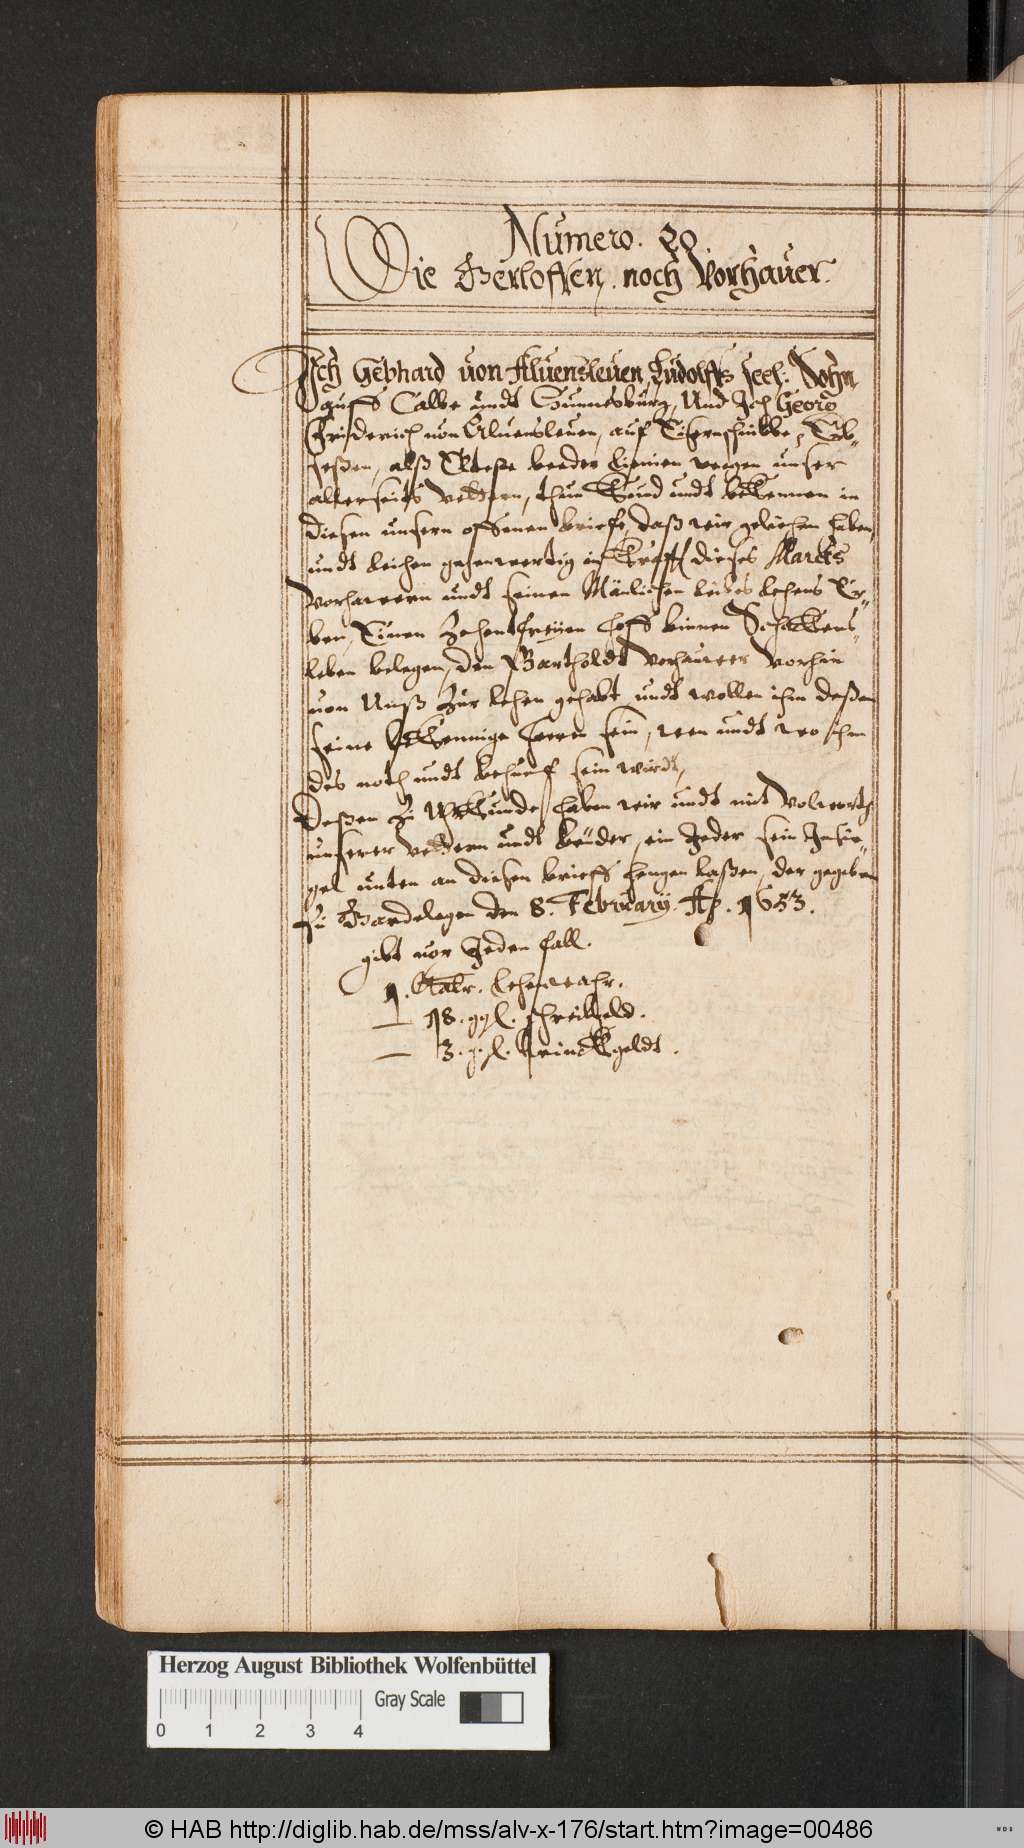 Numero. 20.
Die Gerloffen. noch Vorhauer.
Ich Gebhard von Aluensleuen, Ludolffs seel: Sohn
auff Calbe undt Hunnesburg, Und Ich Georg
Friderich von Aluensleuen, auf Eisernschnibbe, Erb-
seßen, alß Elteste beeder Linien wegen unser
allerseits Vettern, thun Kund undt bekennen in
diesen unsern offenen briefe, daß wir geliehen haben,
undt leihen gegenwertig in Krafft dieses Marcks
Vorhawern undt seinen Mänlichen leibes lehens Er-
ben, Einen Zehentfreÿen Hoff binnen Schackens-
leben belegen, den Bartholdt Vorhawer Vorhin
von Unß Zur lehen gehabt undt wollen ihm deßen
seine bekennige Herrn sein, wen undt wo ihm
des noth undt behuef sein wirdt,
Deßen Zu Uhrkunde haben wir undt mit Volworth
unserer Vettern undt brüder, ein Jeder sein Insie-
gel unten an diesen brieff hengen laßen, der gegeben
Zu Gardelegen den 8. Februarÿ. Aō. 1633.
gibt vor Jeden fall.
1. thalr. Lehnwahr.
— 18. ggl. schreibgeld.
— 3. ggl. trinckgeldt.
Herzog August Bibliothek Wolfenbüttel
Gray Scale
0 1 2 3 4
© HAB http://diglib.hab.de/mss/alv-x-176/start.htm?image=00486